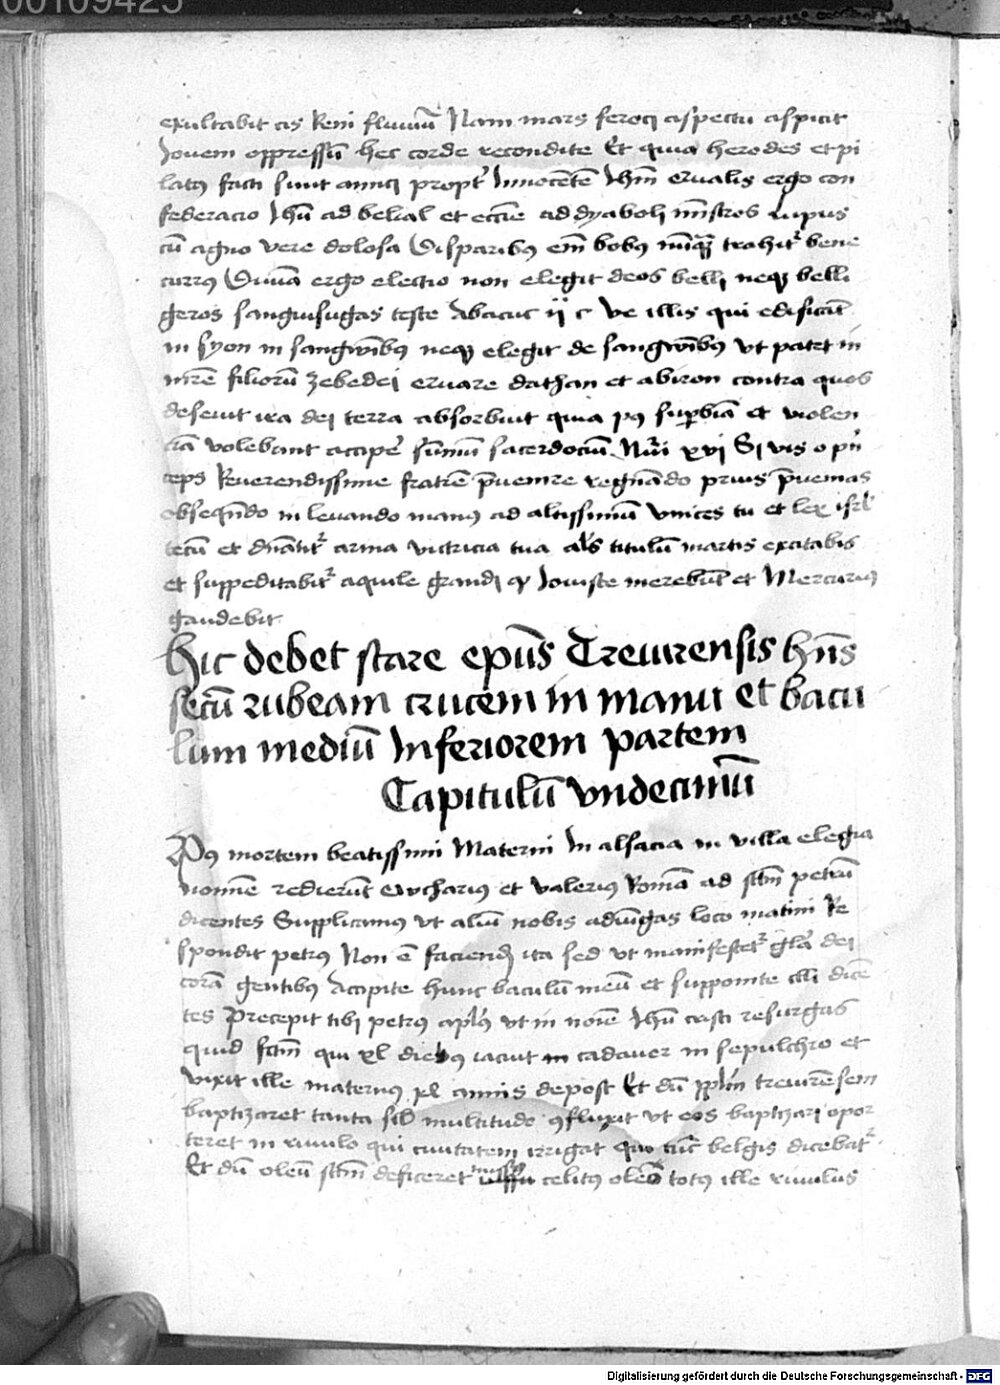 00109425
exultabit cis Reni fluuiū Nam mars feroci aspectu aspicit
Jouem oppressū hec corde recondite Et quia herodes et pi
latꝯ facti sunt amici propt̄ Innocētē Jhm̄ erualis ergo con
federacio Jhū ad belial et eccīe ad dyaboli mīstros Lupus
cū agno vere dolosa Disparibꝯ em̄ bobꝯ nūq̄ trahit᷑ bene
currꝯ Diuīa ergo electio non elegit deos belli neqꝫ belli
geros sangwisugas teste Abacuc ij c Ve illis qui edificāt
in syon in sangwībꝯ neqꝫ elegit de sangwībꝯ vt patet in
mr̄e filiorū Zebedei eruare dathan et abiron contra quos
deseuit ira dei terra absorbuit quia ꝑ suꝑbiā et violen
ciā volebant accipe᷑ sūmū sacerdociū Nūi xvj Si vis o pn̄
ceps Reuerendissime fratrē p̄uenire regnādo prius p̄uenias
obseqn̄do in leuando manꝯ ad altissimū vinces tu et lex isrl̄
tecū et dn̄abit᷑ arma victricia tua al̄s titulū martis excitabis
et suppeditabit᷑ aquile grandi qꝫ Jouiste merebūt et Mercurius
gaudebit
Hic debet stare ep̄us Treuirensis hn̄s
secū rubeam crucem in manu et bacu
lum mediū Inferiorem partem
Capitulū vndecimū
Pꝯ mortem beatissimi Materni In alsacia in villa elegia
nomīe redierūt Eucharius et valerius Romā ad sctm̄ petrū
dicentes Supplicamꝯ vt aliū nobis adiūgas loco matini Re
spondit petrꝯ Non ē faciend̄ ita sed vt manifestet᷑ gl̄a dei
corā gentibꝯ Accipite hunc baculū meū et supponite illi dicē
tes Precepit tibi petrus apl̄us vt in noīe Jhū cristi resurgas
quid fctm̄ qui xl diebꝯ iacuit in cadauer in sepulchro et
vixit ille maternꝯ xl annis depost Et dū ppl̄m treuirēsem
baptizaret tanta sibi multitudo ꝯfluxit vt eos baptizari opor
teret in riuulo qui ciuitatem irrigat que tūc belgis dicebat᷑
Et dū oleū sctm̄ deficeret celitꝯ oleū totꝯ ille riuulus
Digitalisierung gefördert durch die Deutsche Forschungsgemeinschaft - DFG